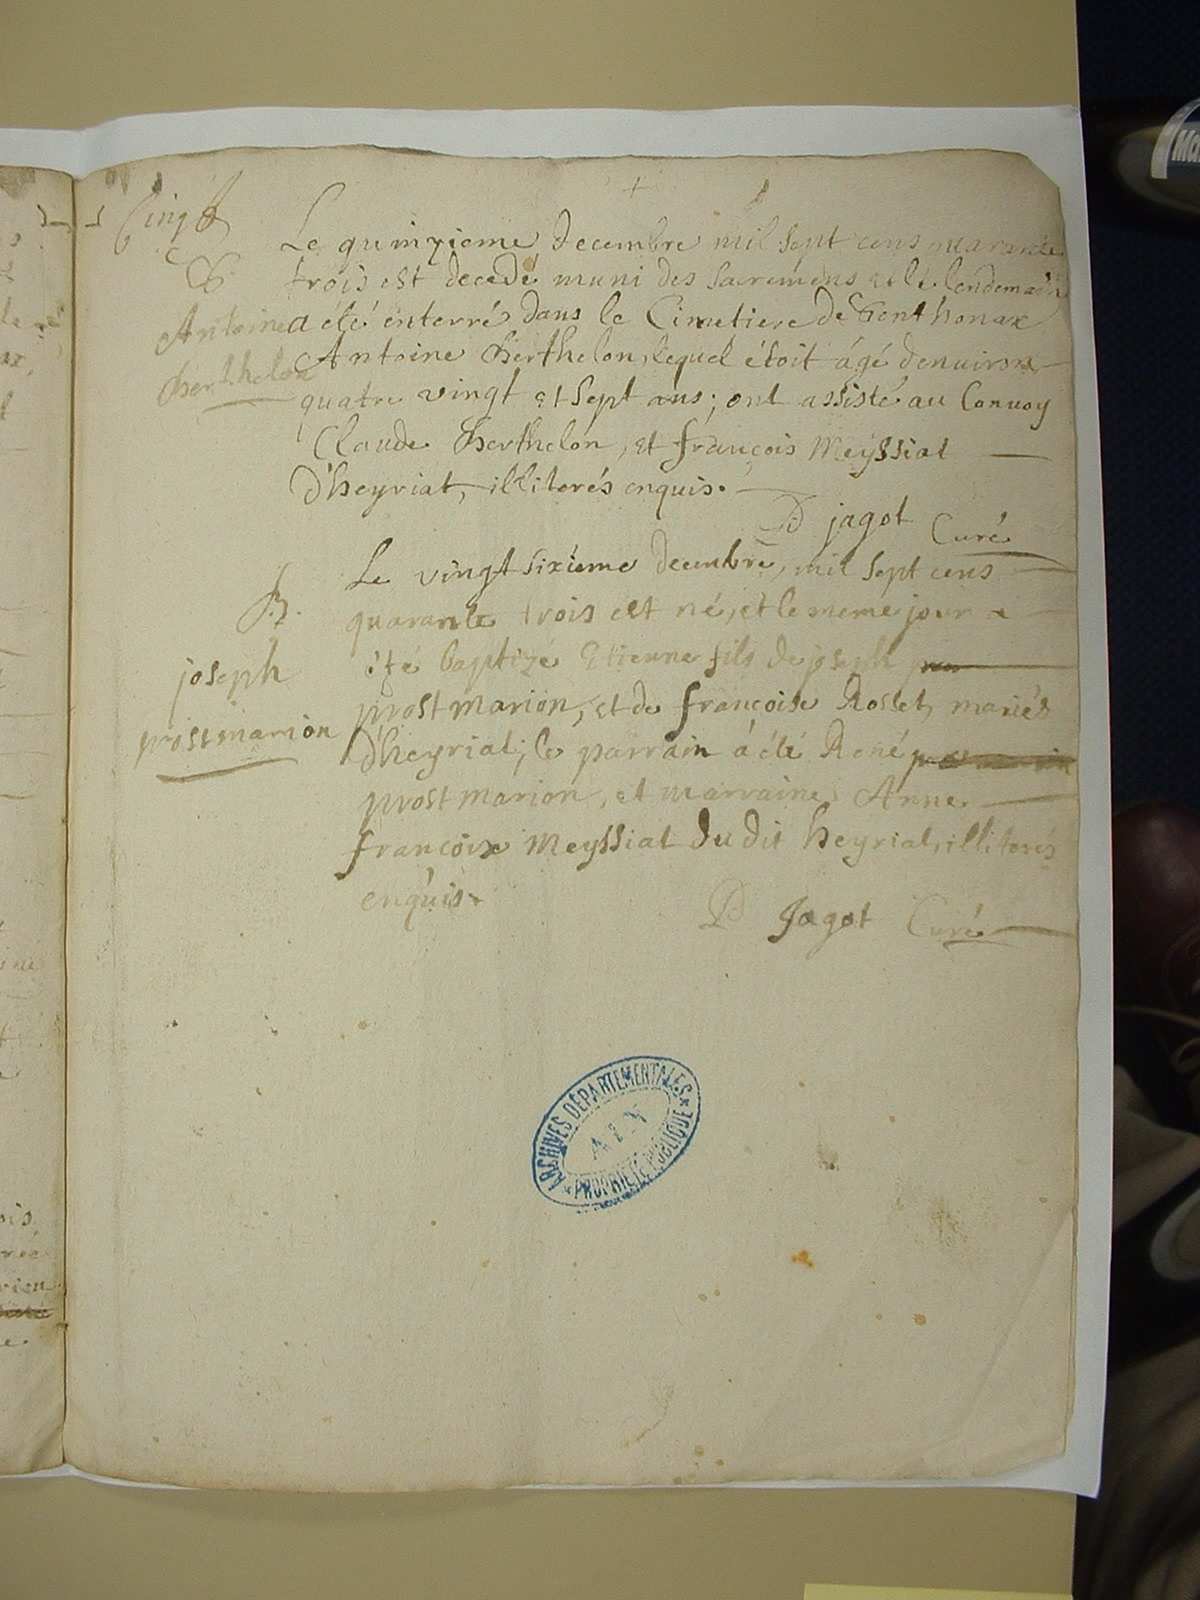 Cinq
S.
Antoine
Berthelon
Le quinzieme decembre mil sept cens quarante
trois est decedé muni des sacremens et le lendemain
a été enterré dans le Cimetiere de Senthonax
Antoine Berthelon, lequel étoit âgé denviron
quatre vingt et sept ans ; ont assisté au Convoy
Claude Berthelon, et françois Meyssiat
D'heyriat, illiterés enquis.
jagot Curé
B.
joseph
prost marion
Le vingt sixieme decembre, mil sept cens
quarante trois est né, et le meme jour a
été baptizé Etienne fils de joseph
prost marion, et de françoise Rosset, mariés
d'heyriat; le parrain a été René
prost marion, et marraine Anne
françoise Meyssiat du dit heyriat, illiterés
enquis.
Jagot Curé
ARCHIVES DÉPARTEMENTALES
AIN
PROPRIÉTÉ PUBLIQUE